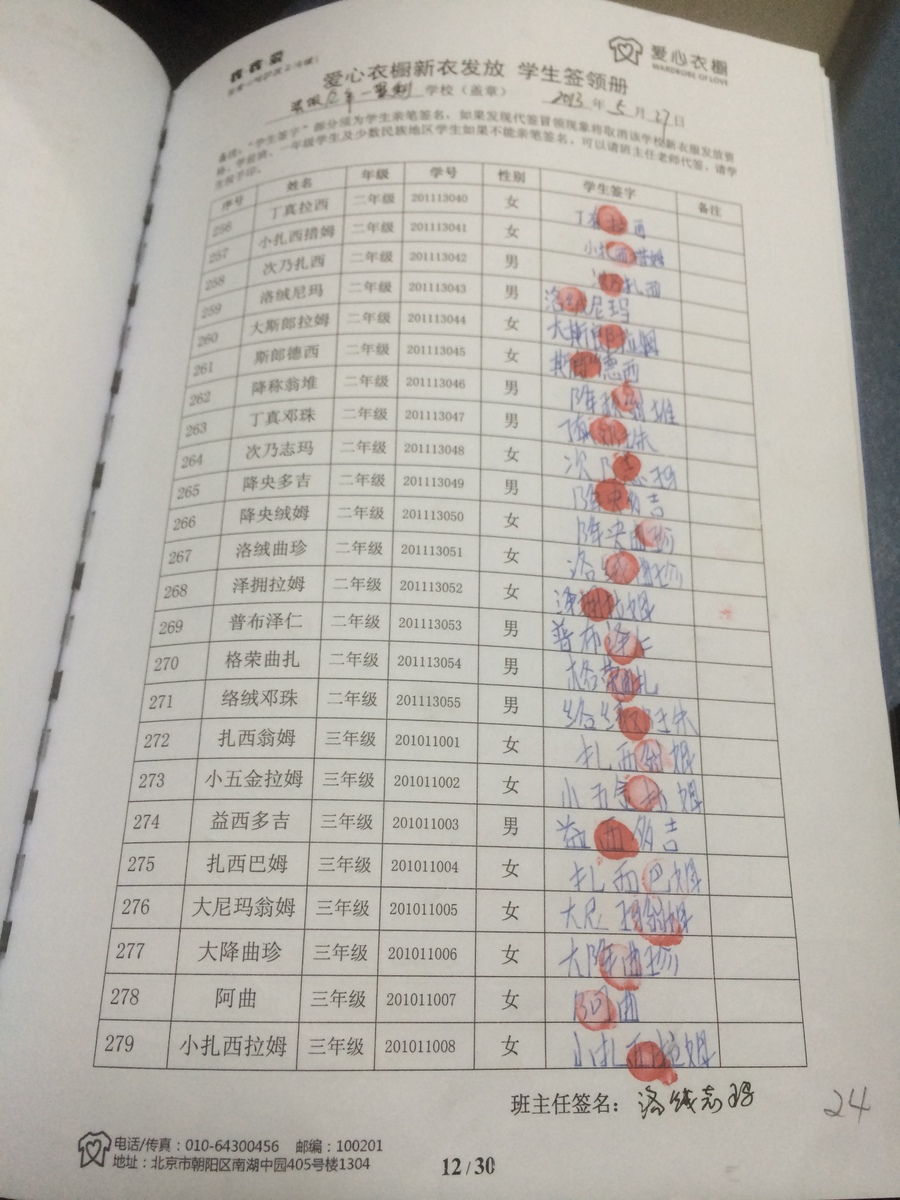 我我爱
爱心衣橱
WARDROBE OF LOVE
爱心衣橱新衣发放 学生签领册
学校（盖章） 2013 年 5 月 27 日
备注："学生签字"部分须为学生亲笔签名，如果发现代签冒领现象将取消该学校新衣服发放资
格，学前班、一年级学生及少数民族地区学生如果不能亲笔签名，可以请班主任老师代签，请学
生按手印。
序号 姓名 年级 学号 性别 学生签字 备注
256 丁真拉西 二年级 201113040 女 丁真拉西
257 小扎西措姆 二年级 201113041 女 小扎西措姆
258 次乃扎西 二年级 201113042 男 次乃扎西
259 洛绒尼玛 二年级 201113043 男 洛绒尼玛
260 大斯郎拉姆 二年级 201113044 女 大斯郎拉姆
261 斯郎德西 二年级 201113045 女 斯郎德西
262 降称翁堆 二年级 201113046 男 降称翁堆
263 丁真邓珠 二年级 201113047 男
264 次乃志玛 二年级 201113048 女 次乃志玛
265 降央多吉 二年级 201113049 男 降央多吉
266 降央绒姆 二年级 201113050 女 降央曲珍
267 洛绒曲珍 二年级 201113051 女 洛绒曲珍
268 泽拥拉姆 二年级 201113052 女 泽拥拉姆
269 普布泽仁 二年级 201113053 男 普布泽仁
270 格荣曲扎 二年级 201113054 男 格荣曲扎
271 络绒邓珠 二年级 201113055 男 络绒邓珠
272 扎西翁姆 三年级 201011001 女 扎西翁姆
273 小五金拉姆 三年级 201011002 女 小五金拉姆
274 益西多吉 三年级 201011003 男 益西多吉
275 扎西巴姆 三年级 201011004 女 扎西巴姆
276 大尼玛翁姆 三年级 201011005 女 大尼玛翁姆
277 大降曲珍 三年级 201011006 女 大降曲珍
278 阿曲 三年级 201011007 女 阿曲
279 小扎西拉姆 三年级 201011008 女 小扎西拉姆
班主任签名：洛绒志玛
24
电话/传真：010-64300456 邮编：100201
地址：北京市朝阳区南湖中园405号楼1304
12 / 30